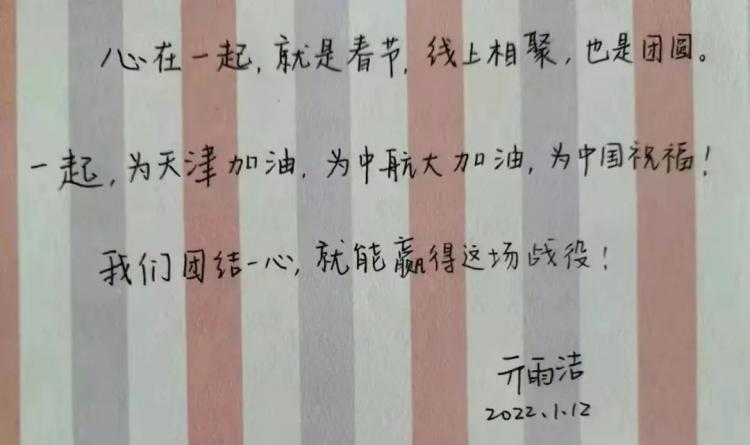 心在一起，就是春节，线上相聚，也是团圆。
一起，为天津加油，为中航大加油，为中国祝福！
我们团结一心，就能赢得这场战役！
亓雨洁
2022.1.12